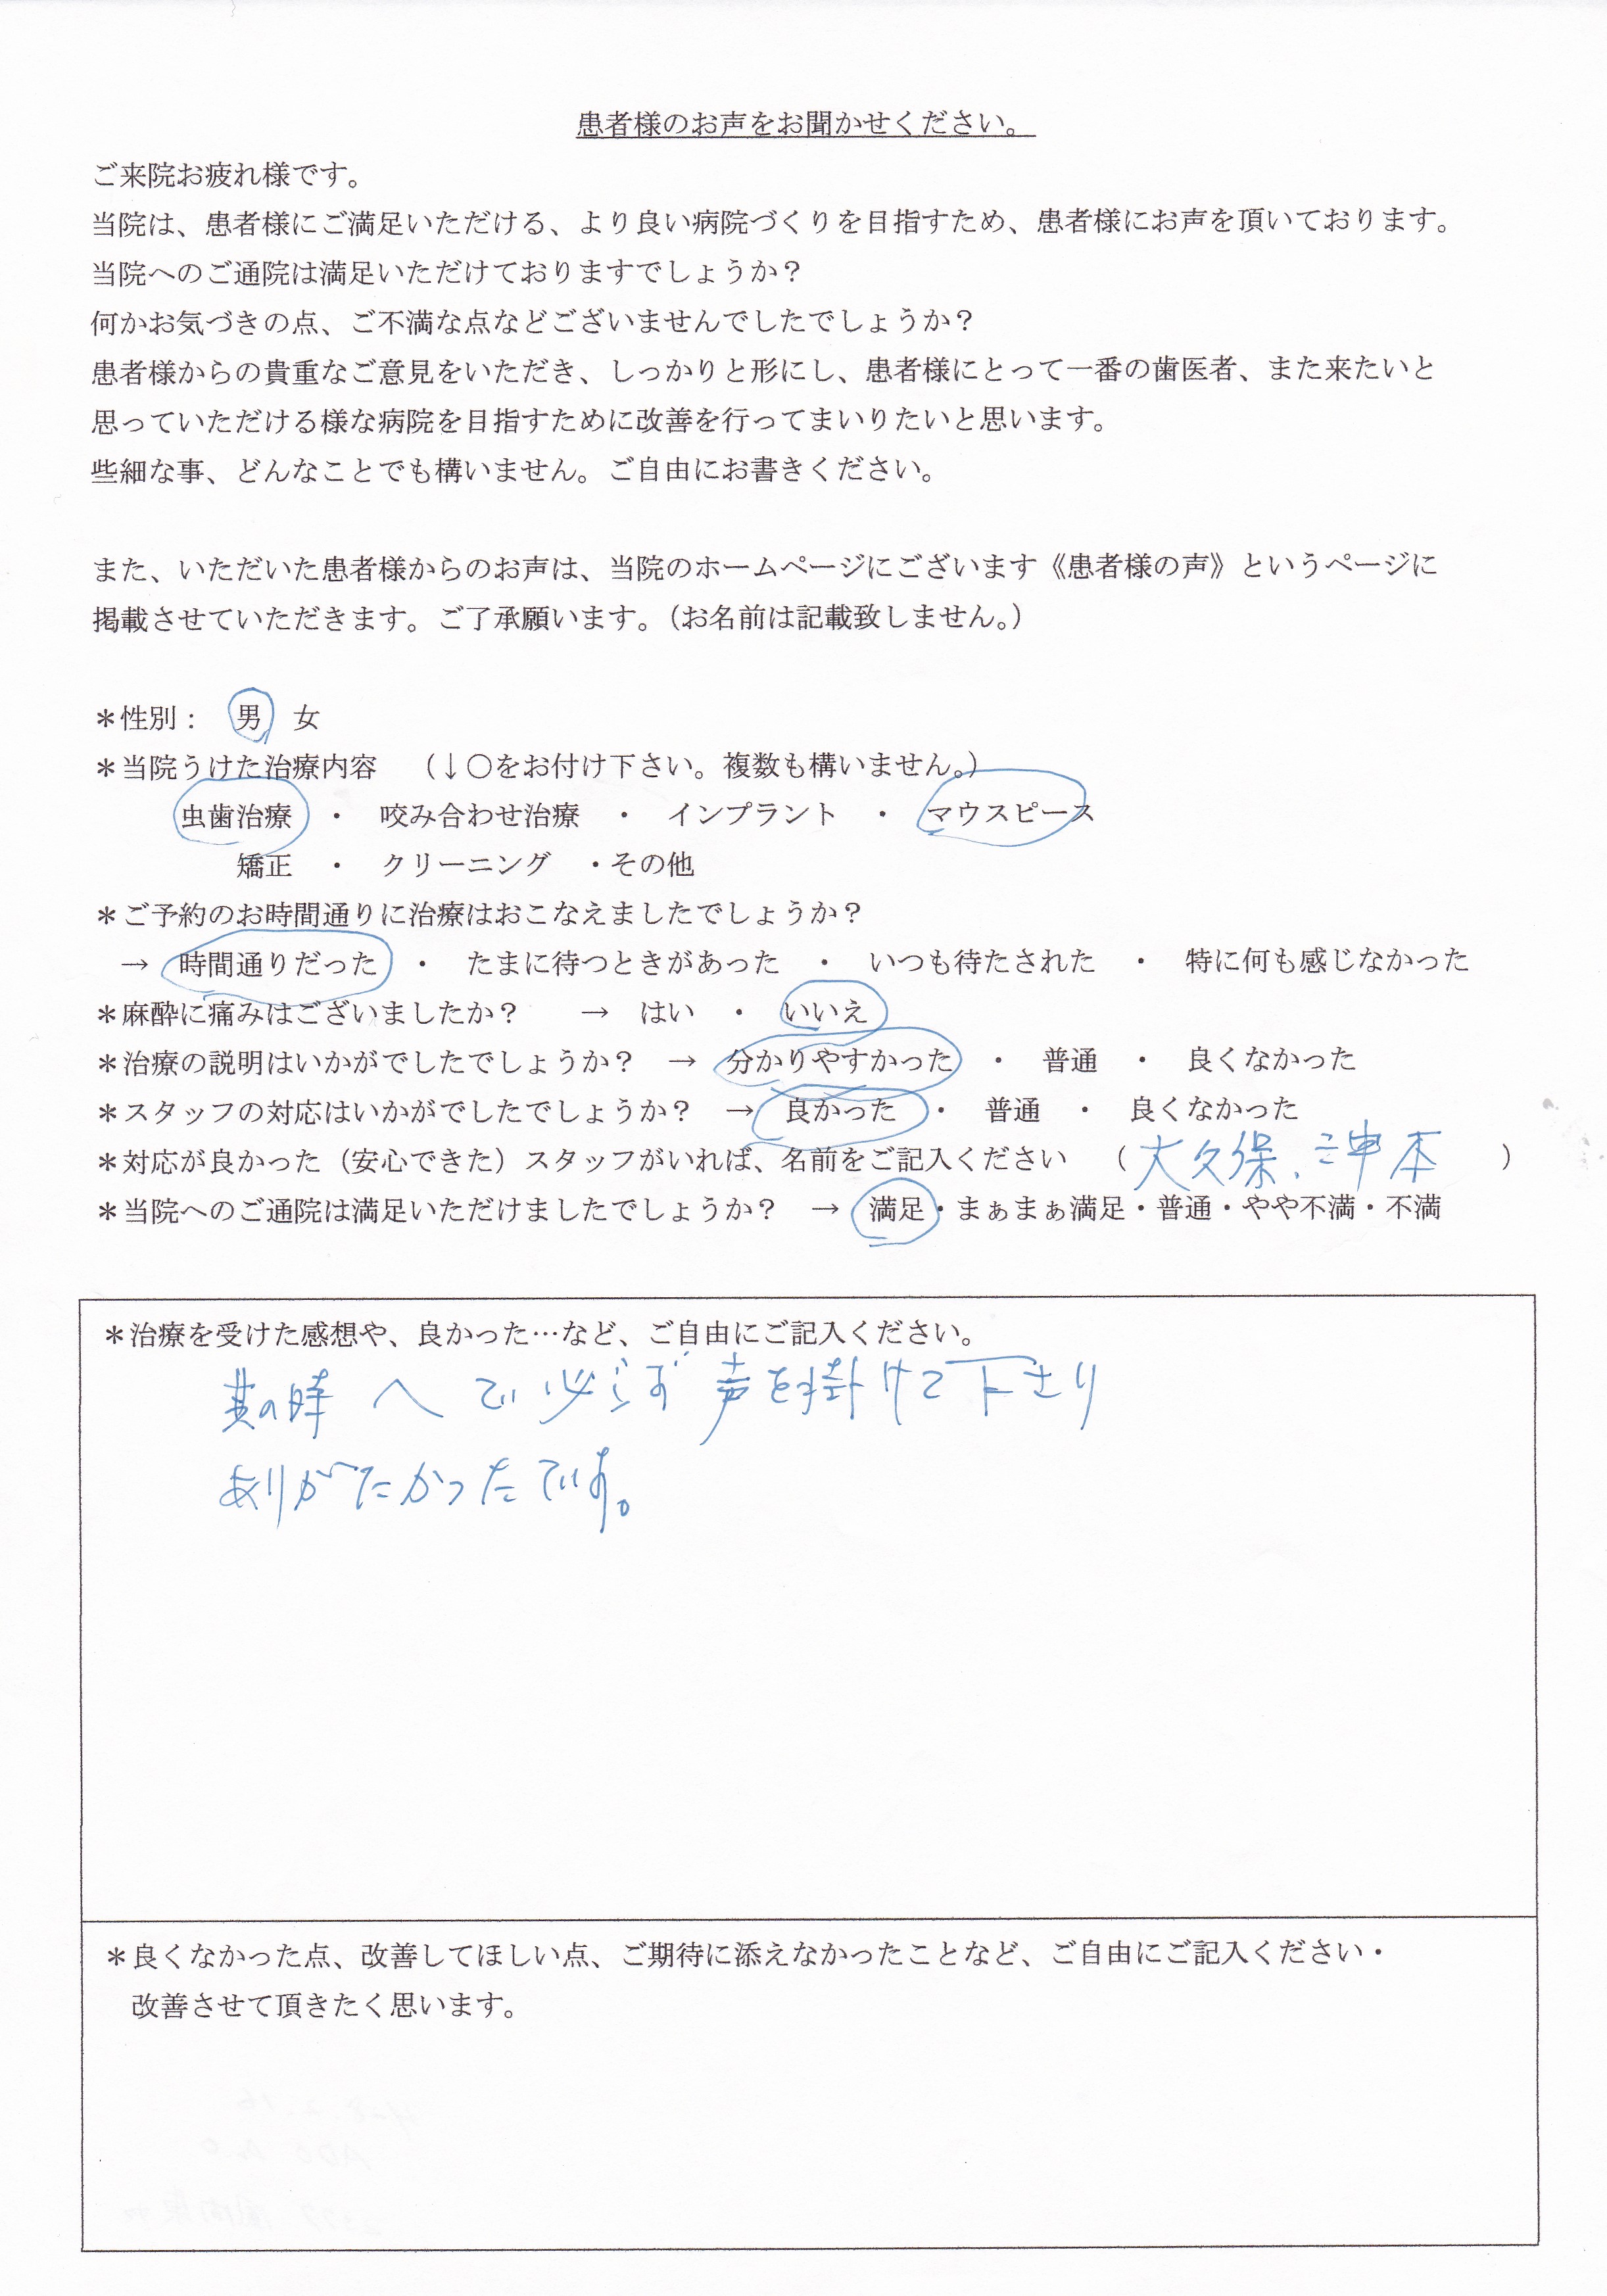 患者様のお声をお聞かせください。
ご来院お疲れ様です。
当院は、患者様にご満足いただける、より良い病院づくりを目指すため、患者様にお声を頂いております。
当院へのご通院は満足いただけておりますでしょうか？
何かお気づきの点、ご不満な点などございませんでしたでしょうか？
患者様からの貴重なご意見をいただき、しっかりと形にし、患者様にとって一番の歯医者、また来たいと
思っていただける様な病院を目指すために改善を行ってまいりたいと思います。
些細な事、どんなことでも構いません。ご自由にお書きください。
また、いただいた患者様からのお声は、当院のホームページにございます《患者様の声》というページに
掲載させていただきます。ご了承願います。（お名前は記載致しません。）
＊性別： 男 女
＊当院うけた治療内容 （↓〇をお付け下さい。複数も構いません。）
虫歯治療 ・ 咬み合わせ治療 ・ インプラント ・ マウスピース
矯正 ・ クリーニング ・その他
＊ご予約のお時間通りに治療はおこなえましたでしょうか？
→ 時間通りだった ・ たまに待つときがあった ・ いつも待たされた ・ 特に何も感じなかった
＊麻酔に痛みはございましたか？ → はい ・ いいえ
＊治療の説明はいかがでしたでしょうか？ → 分かりやすかった ・ 普通 ・ 良くなかった
＊スタッフの対応はいかがでしたでしょうか？ → 良かった ・ 普通 ・ 良くなかった
＊対応が良かった（安心できた）スタッフがいれば、名前をご記入ください （大久保、 本）
＊当院へのご通院は満足いただけましたでしょうか？ → 満足・まぁまぁ満足・普通・やや不満・不満
＊治療を受けた感想や、良かった…など、ご自由にご記入ください。
の時 必らず声を掛けて下さり
ありがたかったです。
＊良くなかった点、改善してほしい点、ご期待に添えなかったことなど、ご自由にご記入ください・
改善させて頂きたく思います。